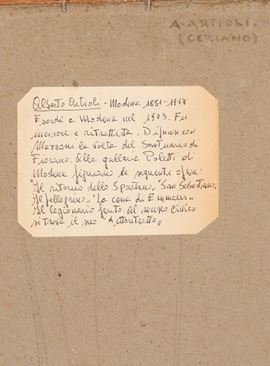 A. ARTIOLI
(CERIANO)
Alberto Artioli - Modena 1881-1917
Esordì a Modena nel 1903. Fu
incisore e ritrattista. Dipinse con
Mazzoni la volta del Santuario di
Fiorano. Alla galleria Poletti di
Modena figurano le seguenti opere:
"Il ritorno dello Spartano, "San Sebastiano,
Il pellegrino - "La cena di Emmaus"
Il legionario ferito. Al museo Civico
si trova il suo "Autoritratto"